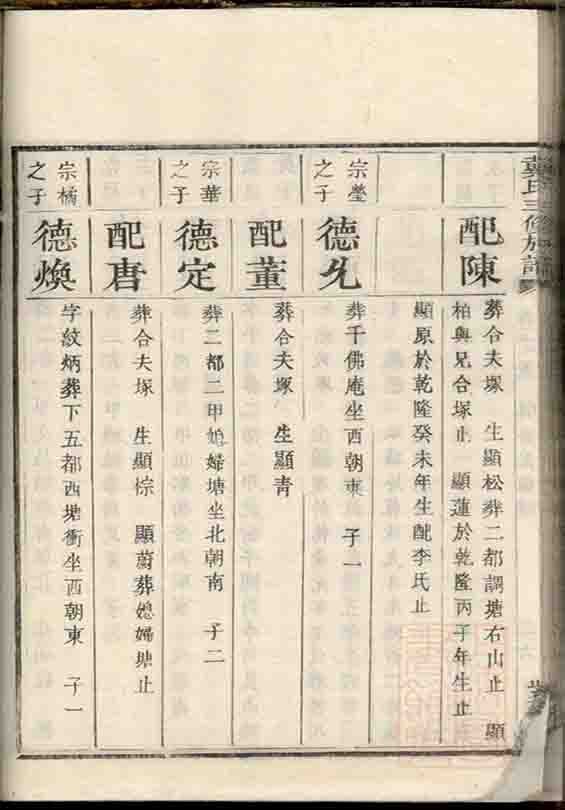 氏三修族譜
配陳
葬合夫塚 生顯松葬二都調塘右山止 顯
柏與兄合塚止 顯蓮於乾隆丙子年生止
顯原於乾隆癸未年生配李氏止
宗瑩
之子
德允
葬千佛庵坐西朝東 子一
配董
葬合夫塚 生顯青
宗華
之子
德定
葬二都二甲媳婦塘坐北朝南 子二
配唐
葬合夫塚 生顯悰 顯蔚葬媳婦塘止
宗橘
之子
德煥
字紋炳葬下五都西塘衝坐西朝東 子一